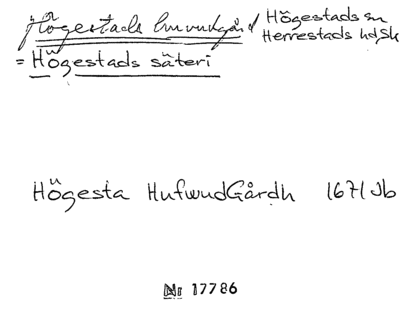 Högestads huvudgård Högestads sn
Herrestads hd, Sk
= Högestads säteri
Högesta HufwudGårdh 1671 Jb
Nr 17786